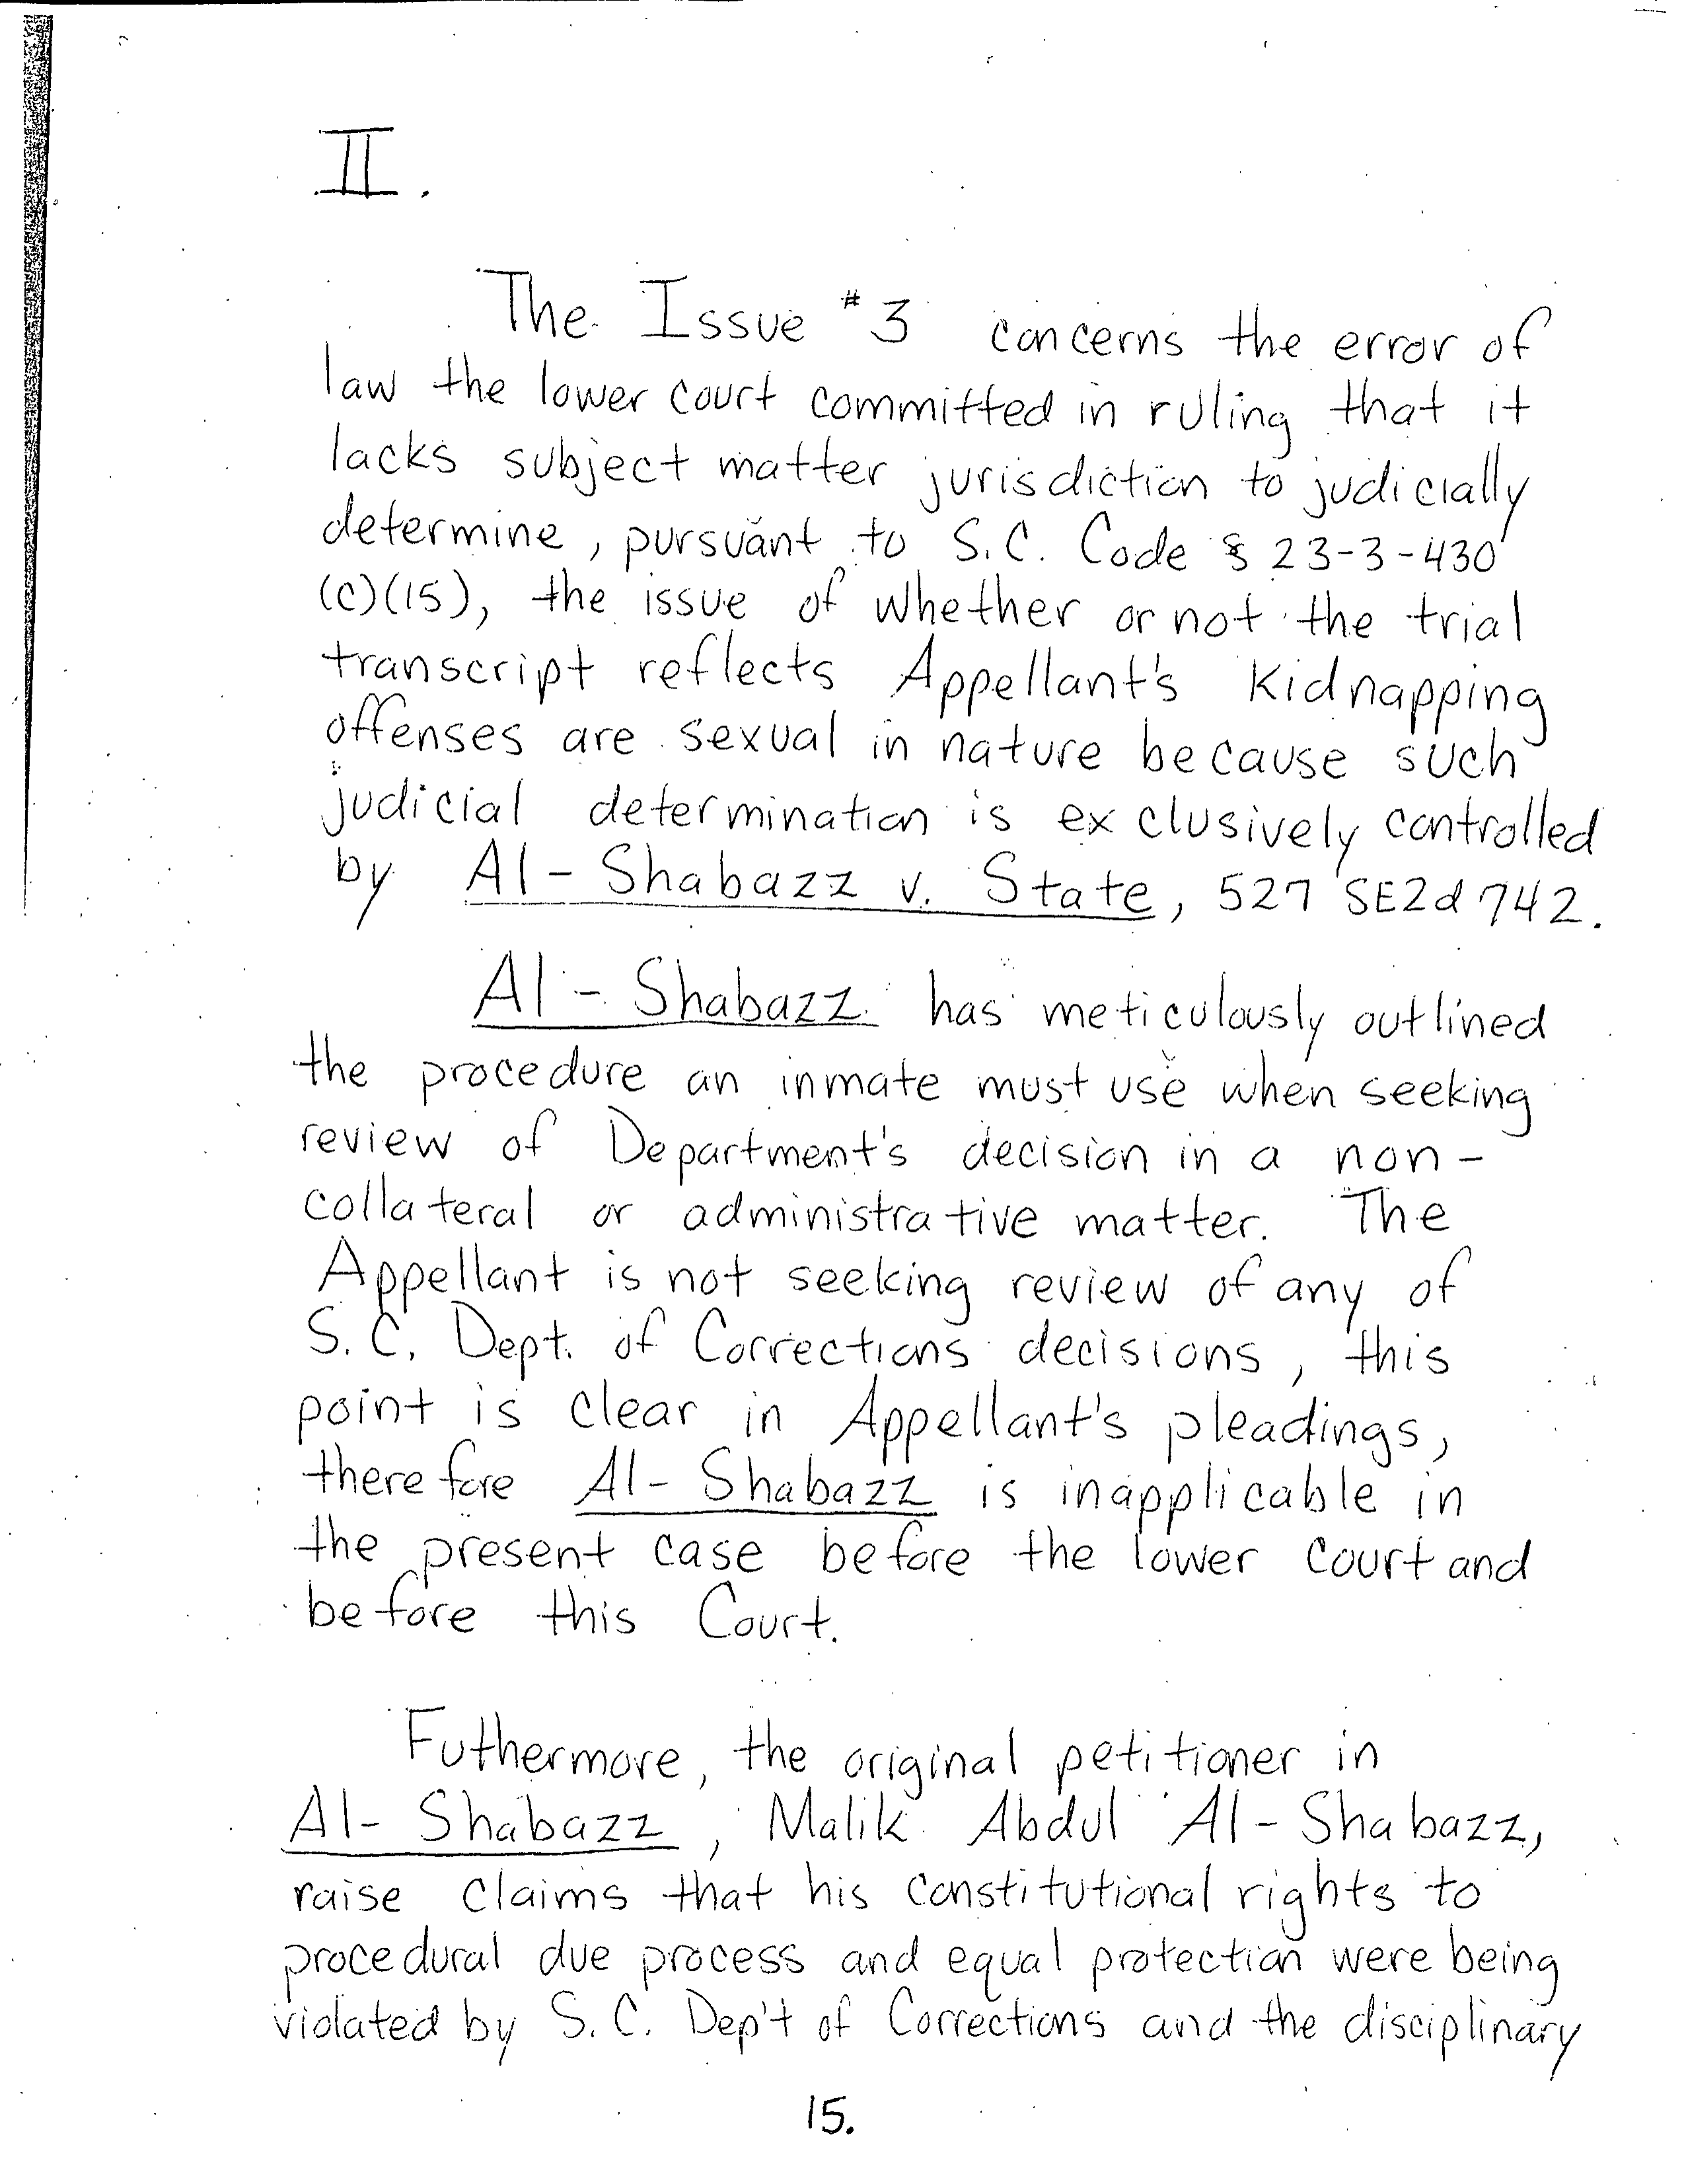 II.
The Issue #3 concerns the error of
law the lower court committed in ruling that it
lacks subject matter jurisdiction to judicially
determine, pursuant to S.C. Code § 23-3-430
(C)(15), the issue of whether or not the trial
transcript reflects Appellant's Kidnapping
offenses are sexual in nature because such
judicial determination is exclusively controlled
by Al-Shabazz v. State, 527 SE2d 742.
Al-Shabazz has meticulously outlined
the procedure an inmate must use when seeking
review of Department's decision in a non-
collateral or administrative matter. The
Appellant is not seeking review of any of
S.C. Dept. of Corrections decisions, this
point is clear in Appellant's pleadings,
therefore Al-Shabazz is inapplicable in
the present case before the lower court and
before this Court.
Futhermore, the original petitioner in
Al-Shabazz, Malik Abdul Al-Shabazz,
raise claims that his constitutional rights to
procedural due process and equal protection were being
violated by S.C. Dep't of Corrections and the disciplinary
15.